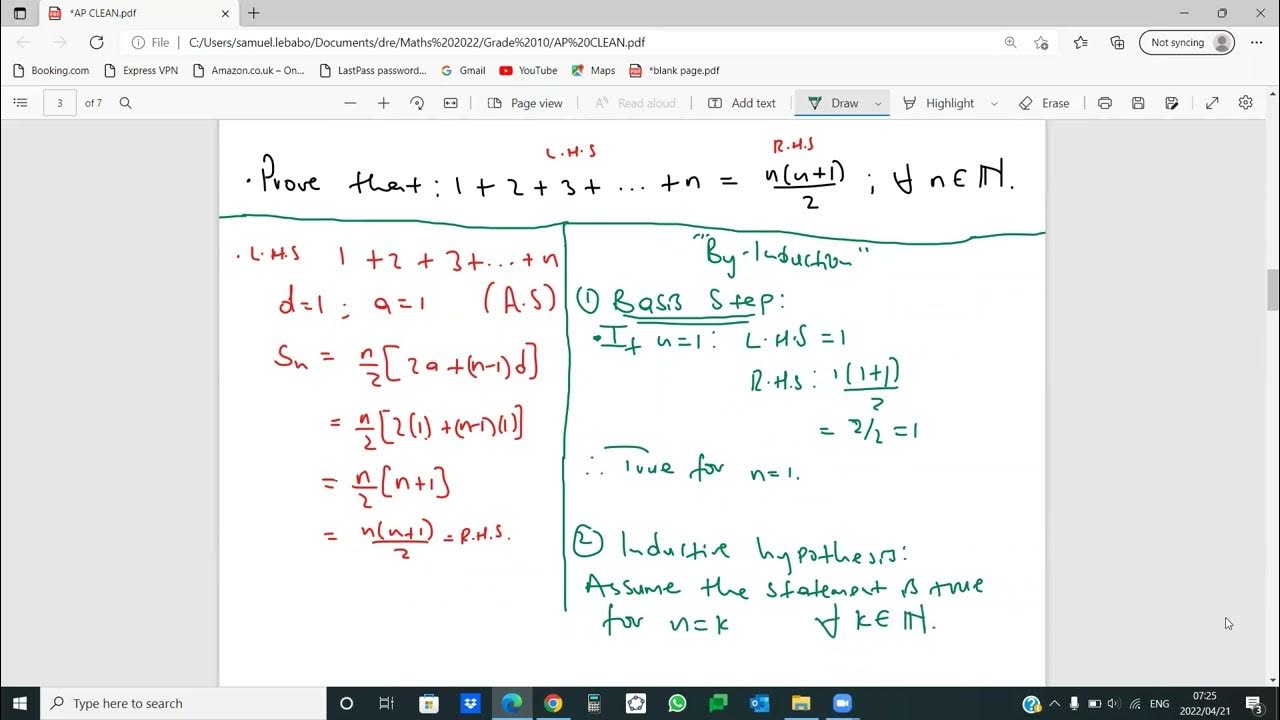 *AP CLEAN.pdf
File
C:/Users/samuel.lebabo/Documents/dre/Maths%202022/Grade%2010/AP%20CLEAN.pdf
Not syncing
Booking.com
Express VPN
Amazon.co.uk – On...
LastPass password...
Gmail
YouTube
Maps
*blank page.pdf
3 of 7
Page view
Read aloud
Add text
Draw
Highlight
Erase
L.H.S
R.H.S
. Prove that : 1 + 2 + 3 + ... + n = n(n+1)/2 ; ∀ n ∈ ℕ.
. L.H.S 1 + 2 + 3 + ... + n
d=1 ; a=1 (A.S)
Sn = n/2 [2a + (n-1)d]
= n/2 [2(1) + (n-1)(1)]
= n/2 [n+1]
= n(n+1)/2 = R.H.S.
"By-Induction"
① Basis Step:
• If n=1 : L.H.S = 1
R.H.S : 1(1+1)/2
= 2/2 = 1
∴ True for n=1.
② Inductive hypothesis:
Assume the statement is true
for n=k ∀ k ∈ ℕ.
Type here to search
ENG
07:25
2022/04/21
3